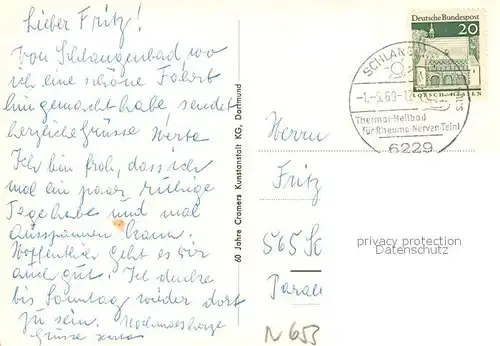 Lieber Fritz!
Von Schlangenbad wo
ich eine schöne Fahrt
hin gemacht habe sendet
herzliche Grüsse Herta
Ich bin froh, dass ich
mal ein paar ruhige
Tage habe und mal
ausspannen kann.
Hoffentlich geht es wir
auch gut. Ich denke
bis Sonntag wieder dort
zu sein. Nochmals herzl
Grüsse Herta
60 Jahre Cramers Kunstanstalt KG, Dortmund
Deutsche Bundespost
20
LORSCH-HESSEN
SCHLANGEN
-1.-5.69-1
Thermal-Heilbad
für Rheuma-Nerven-Teint
6229
Herrn
Fritz
565 So
Parac
privacy protection
Datenschutz
N 653